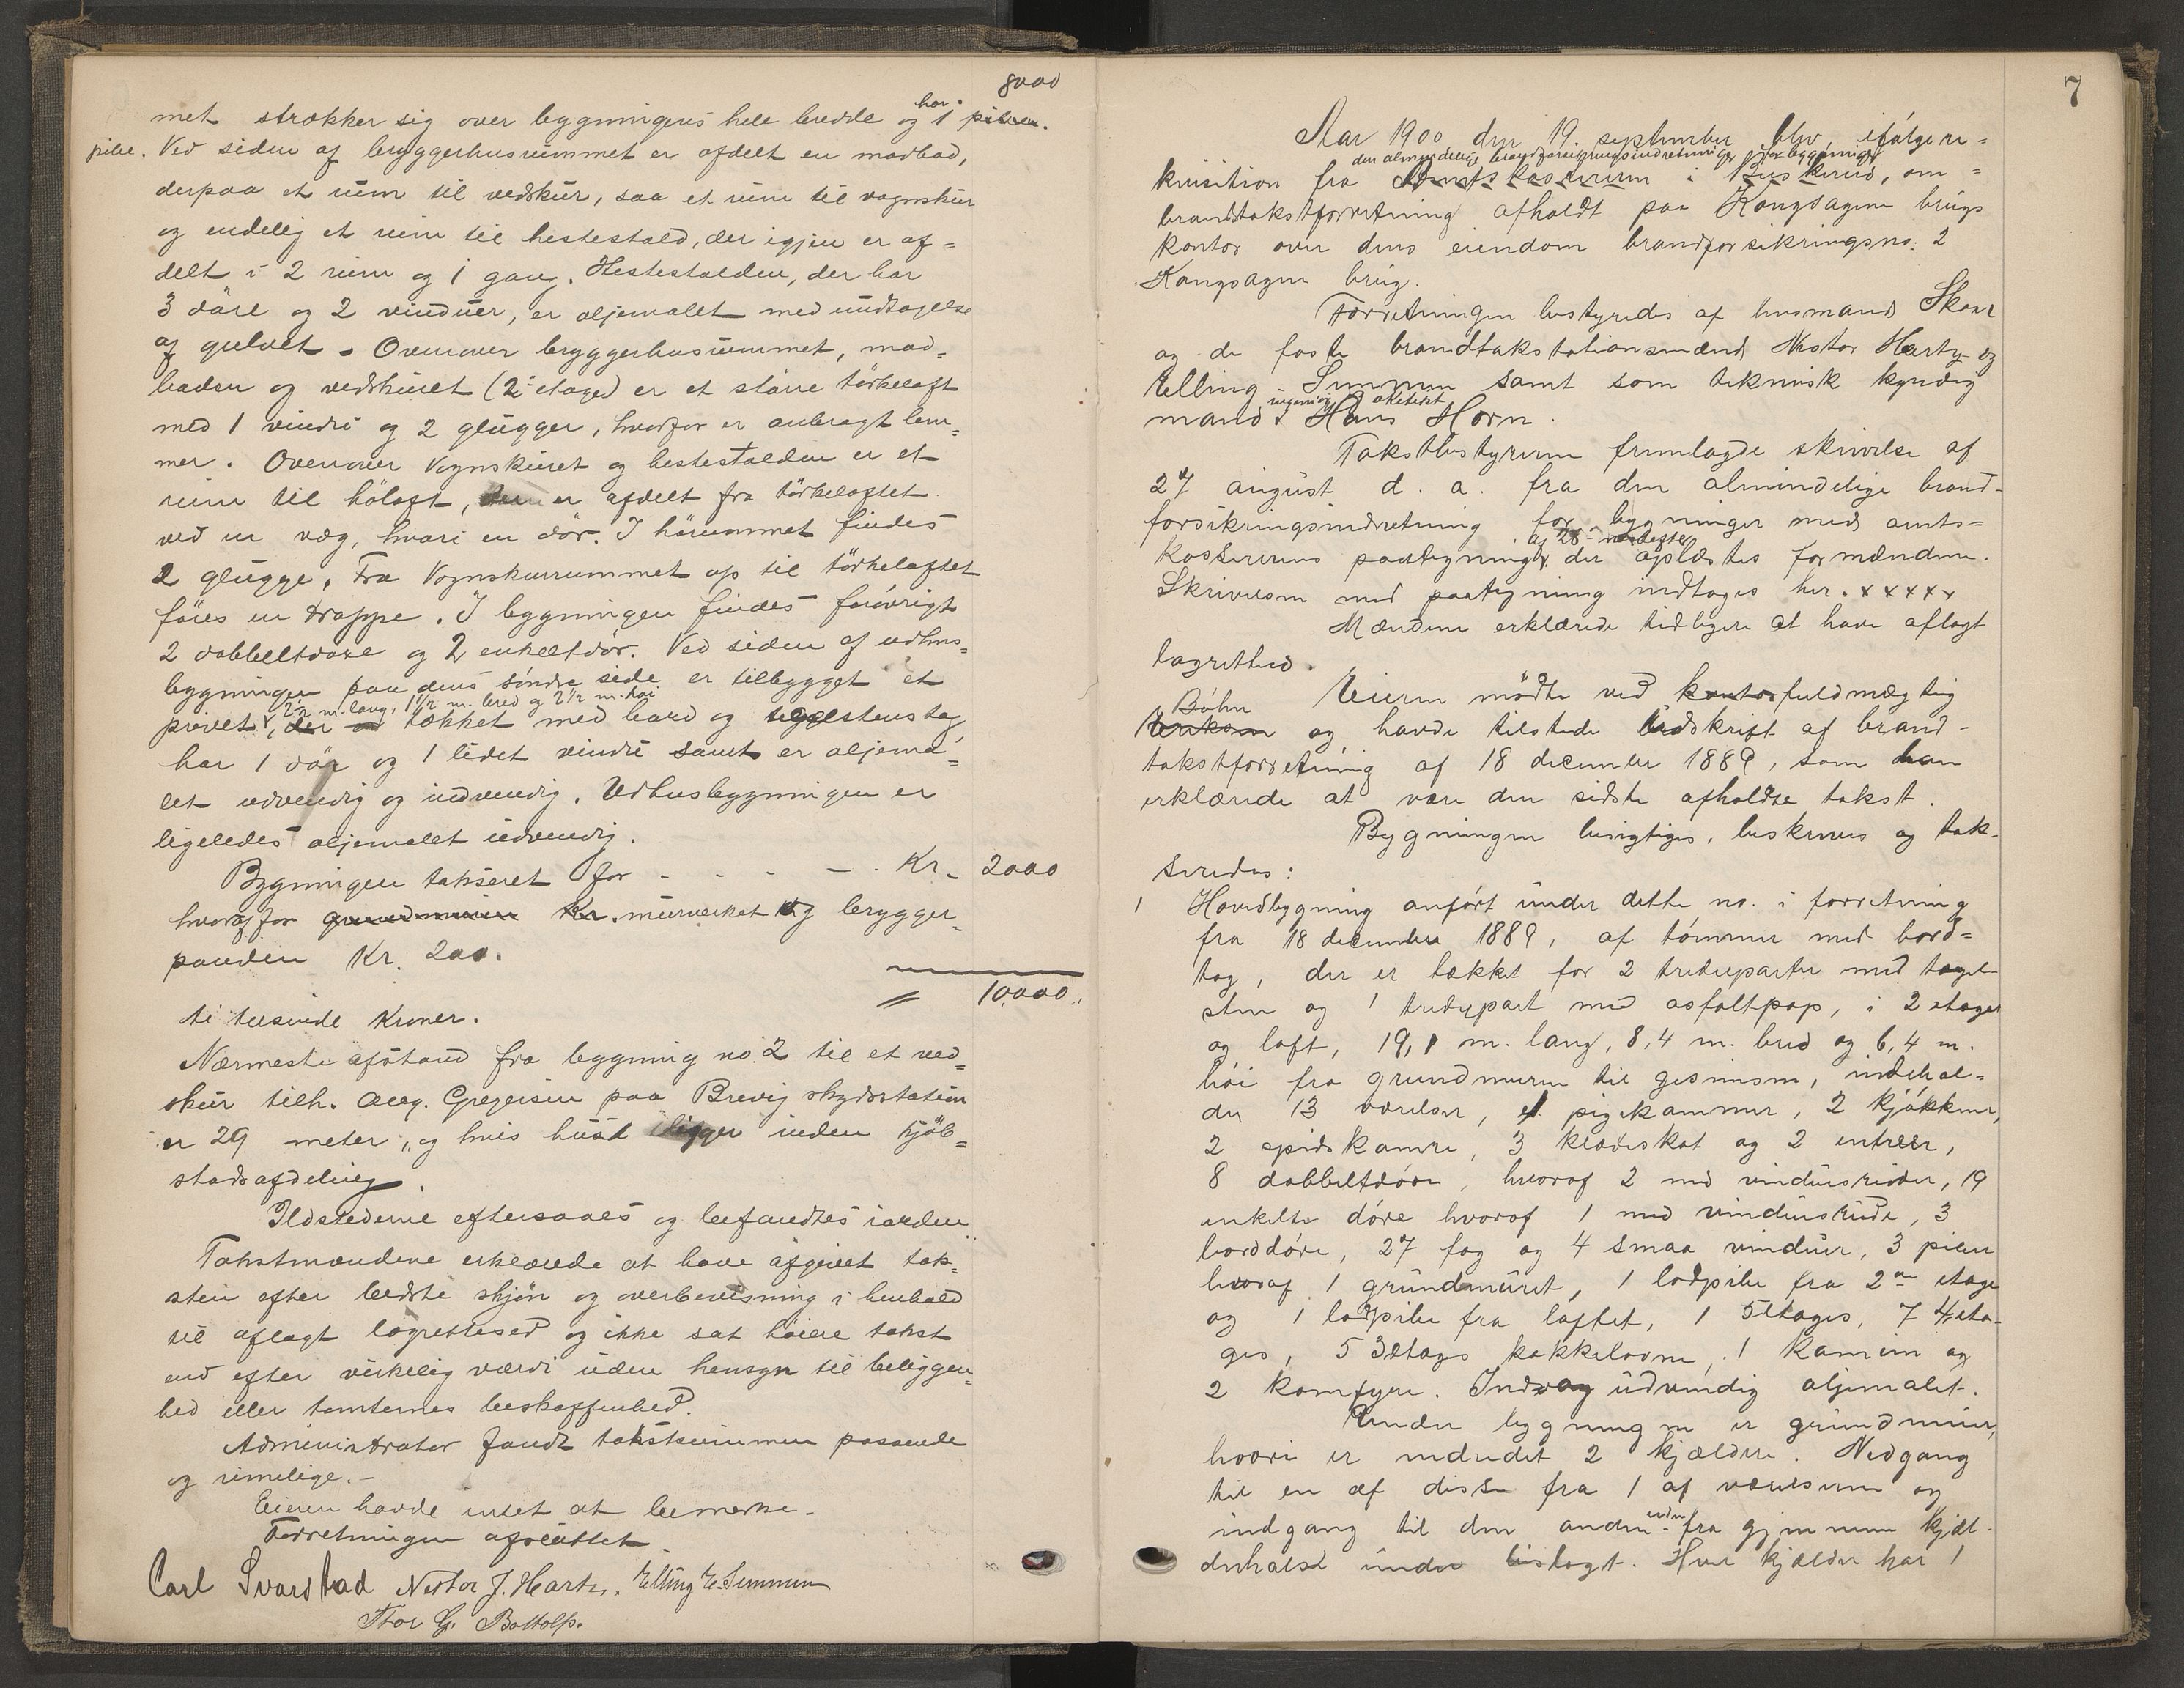 8000
met strækker sig over bygningens hele bredde og har 1 piben.
pibe. Ved siden af bryggerhusrummet er afdelt en madbod,
derpaa et rum til vedskur, saa et rum til vognskur
og endelig et rum til hestestald, der igjen er af=
delt i 2 rum og 1 gang. Hestestalden, der har
3 döre og 2 vinduer, er oljemalet med undtagelse
af gulvet. Ovenover bryggerhusrummet, mad=
boden og vedskuret (2 etage) er et större törkeloft
med 1 vindu og 2 glugger, hvorfor er anbragt lem=
mer. Ovenover Vognskuret og hestestalden er et
rum til höloft, der er afdelt fra törkeloftet
ved en væg, hvori en dör. I hörummet findes
2 glugge. Fra Vognskurrummet op til törkeloftet
föres en trappe. I bygningen findes forövrigt
2 dobbeltdöre og 2 enkeltdör. Ved siden af udhus=
bygningen paa dens söndre side er tilbygget et
2 1/2 m. lang, 1 1/2 m. bred og 2 1/2 m. höi
privet, der er tækket med bord og teglstenstag,
har 1 dör og 1 lidet vindu samt er oljema=
let udvendig og indvendig. Udhusbygningen er
ligeledes oljemalet udvendig.
Bygningen takseret for - - - - Kr. 2000
hvoraf for grundmuren Kr. murverket og brygger=
panden Kr. 200.
= 10,000
ti tusinde Kroner.
Nærmeste afstand fra bygning no. 2 til et ved=
skur tilh. Aug. Gregersen paa Brevig skydsstation
er 29 meter, og hvis hust ligger inden kjöb=
stadsafdeling.
Ildstederne eftersaaes og befandtes iorden.
Takstmændene erklærede at have afgivet tak=
sten efter bedste skjön og overbevisning i henhold
til aflagt lagrettesed og ikke sat höiere takst
end efter virkelig værdi uden hensyn til beliggen=
hed eller tomternes beskaffenhed.
Administrator fandt takstsummen passende
og rimelige. -
Eieren havde intet at bemerke.
Forretningen afsluttet
Carl Svarstad Nestor J. Hartz. Elling E. Simmen
Thor G. Bottolfs.
7
Aar 1900 den 19. september blev ifölge re=
den almindelige brandforsikringsindretninger for bygninger
kvisition fra Amtskassereren i Buskerud, om=
brandtakstforretning afholdt paa Kongsagene brugs
kontor over dens eiendom brandforsikringsno. 2
Kongsagene brug.
Forretningen bestyredes af lensmand Skaar
og de faste brandtakstationsmænd Nestor Hartz og
Elling Simmen samt som teknisk kyndig
ingeniör og arkitekt
mand Hans Horn.
Takstbestyreren fremlagde skrivelse af
27 august d. a. fra den almindelige brand-
forsikringsindretning for bygninger med amts=
af 28 næstefter
kassererens paategning, der oplæstes for mændene.
Skrivelsen med paategning indtages her. x x x x x
Mændene erklærede tidligere at have aflagt
lagretteed.
Eieren mödte ved kontorfuldmægtig
Böhn
og havde tilstede udskrift af brand-
takstforretning af 18 december 1889, som han
erklærede at være den sidste afholdte takst.
Bygningen besigtiges, beskrives og tak-
seredes:
1 Hovedbygning anfört under dette no. i forretning
fra 18 december 1889, af tömmer med bord=
tag, der er tækket for 2 trediepartier med tagel-
sten og 1 trediepart med asfaltpap, i 2 etager
og loft, 19,1 m. lang, 8,4 m. bred og 6,4 m.
höi fra grundmuren til gesimsen, indehol=
der 13 værelser, et pigekammer, 2 kjökkener,
2 spidskamre, 3 klædeskot og 2 entreer,
8 dobbeltdöre, hvoraf 2 med vindusruder, 19
enkelte döre hvoraf 1 med vindusrude, 3
borddöre, 27 fag og 4 smaa vinduer, 3 piber
hvoraf 1 grundmuret, 1 lodpibe fra 2en etage
og 1 lodpibe fra loftet, 1 5etages, 7 4eta-
ges, 5 3etages kakkelovne, 1 kamin og
2 komfyre. Ind og udvendig oljemalet.
Under bygningen er grundmur,
hvori er indredet 2 kjældere. Nedgang
til en af disse fra 1 af værelserne og
indgang til den anden uden fra gjennem kjæl-
derhalse under bislagt. Hver kjælder har 1